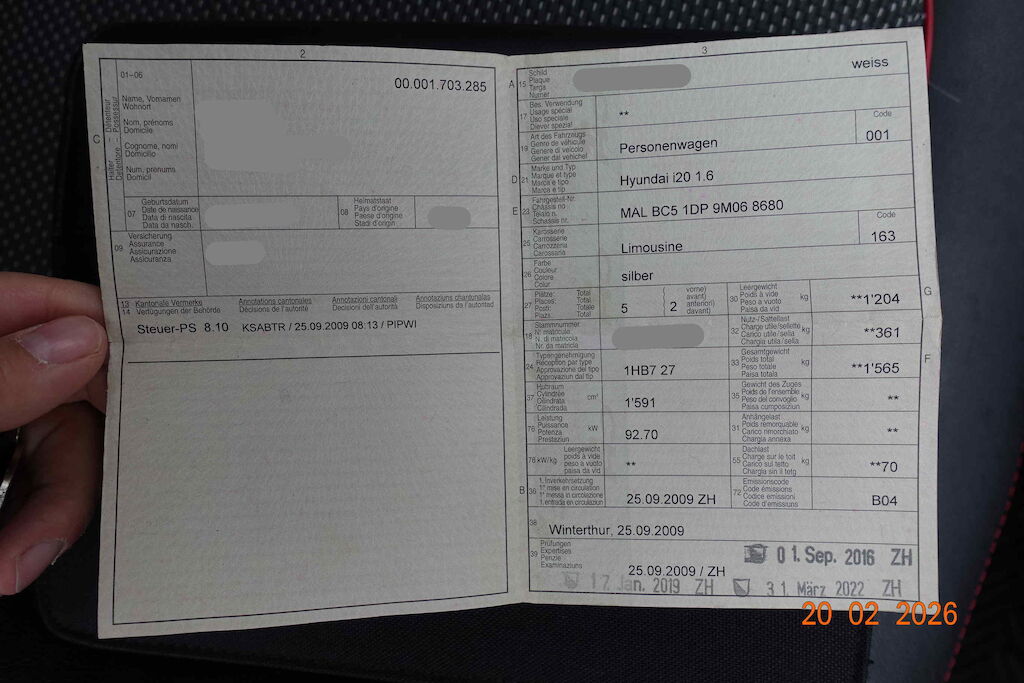 2
01–06
00.001.703.285
C
Halter
Détenteur
Detentore
Possessur
Name, Vornamen
Wohnort
Nom, prénoms
Domicile
Cognome, nomi
Domicilio
Num, prenums
Domicil
07
Geburtsdatum
Date de naissance
Data di nascita
Data da nasch.
08
Heimatstaat
Pays d'origine
Paese d'origine
Stadi d'origin
09
Versicherung
Assurance
Assicurazione
Assicuranza
13
14
Kantonale Vermerke
Verfügungen der Behörde
Annotations cantonales
Décisions de l'autorité
Annotazioni cantonali
Decisioni dell'autorità
Annotaziuns chantunalas
Disposiziuns da l'autoritad
Steuer-PS 8.10 KSABTR / 25.09.2009 08:13 / PIPWI
3
A 15
Schild
Plaque
Targa
Numer
weiss
17
Bes. Verwendung
Usage spécial
Uso speciale
Diever spezial
**
19
Art des Fahrzeugs
Genre de véhicule
Genere di veicolo
Gener dal vehichel
Personenwagen
Code
001
D 21
Marke und Typ
Marque et type
Marca e tipo
Marca e tip
Hyundai i20 1.6
E 23
Fahrgestell-Nr.
Châssis no
Telaio n.
Schassis nr.
MAL BC5 1DP 9M06 8680
25
Karosserie
Carrosserie
Carrozzeria
Carossaria
Limousine
Code
163
26
Farbe
Couleur
Colore
Colur
silber
27
Plätze: Total
Places: Total
Posti: Totale
Plazs: Total
5
2
vorne)
avant)
anteriori)
davant)
30
Leergewicht
Poids à vide
Peso a vuoto
Paisa da vid
kg
**1'204
G
18
Stammnummer
N° matricule
N. di matricola
Nr. da matricla
32
Nutz-/Sattellast
Charge utile/sellette
Carico utile/sella
Chargia utila/sella
kg
**361
24
Typengenehmigung
Réception par type
Approvazione del tipo
Approvaziun dal tip
1HB7 27
33
Gesamtgewicht
Poids total
Peso totale
Paisa totala
kg
**1'565
F
37
Hubraum
Cylindrée
Cilindrata
Cilindrada
cm³
1'591
35
Gewicht des Zuges
Poids de l'ensemble
Peso del convoglio
Paisa cumposiziun
kg
**
76
Leistung
Puissance
Potenza
Prestaziun
kW
92.70
31
Anhängelast
Poids remorquable
Carico rimorchiato
Chargia annexa
kg
**
78 kW/kg
Leergewicht
poids à vide
peso a vuoto
paisa da vid
**
55
Dachlast
Charge sur le toit
Carico sul tetto
Chargia sin il tetg
kg
**70
B 36
1. Inverkehrsetzung
1re mise en circulation
1a messa in circolazione
1. entrada en circulaziun
25.09.2009 ZH
72
Emissionscode
Code émissions
Codice emissioni
Code d'emissiuns
B04
38
Winterthur, 25.09.2009
39
Prüfungen
Expertises
Perizie
Examinaziuns
25.09.2009 / ZH
0 1. Sep. 2016 ZH
1 7. Jan. 2019 ZH
3 1. März 2022 ZH
20 02 2026